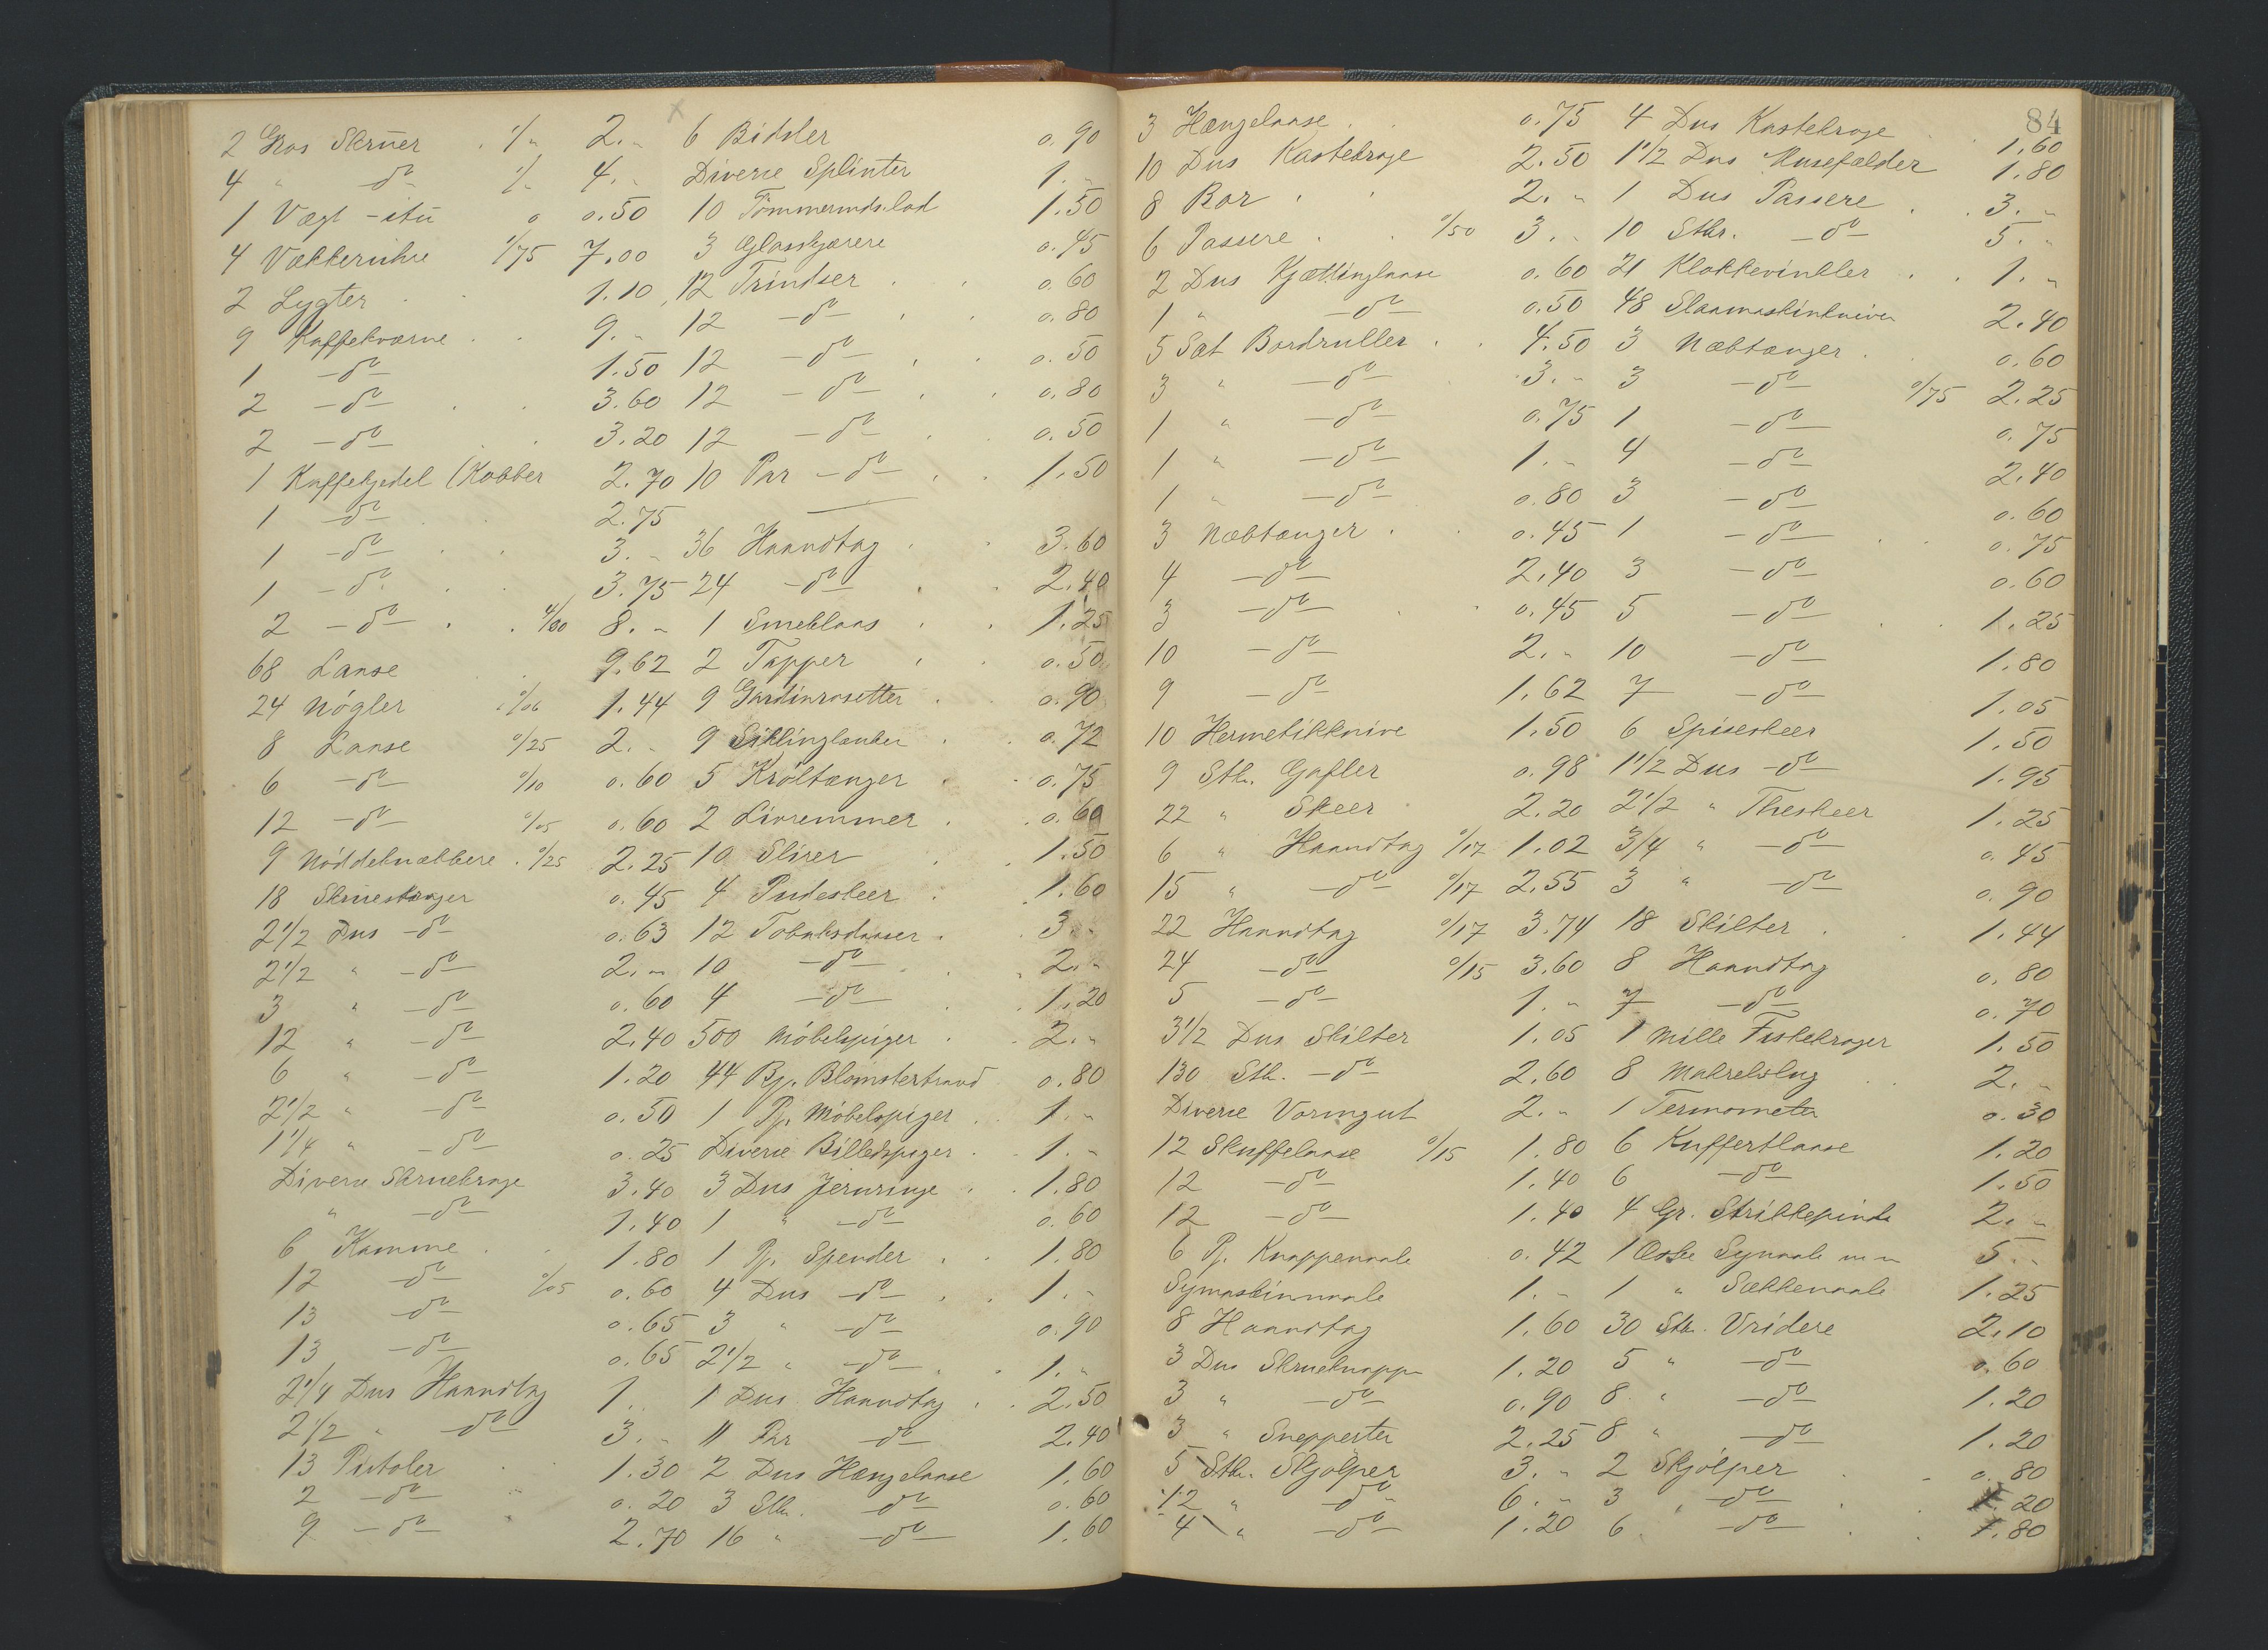 2 Gros Skruer 1/„ 2.„
4 „ —do— 1/„ 4.„
1 Vægt - itu 0.50
4 Vækkeruhre 1/75 7.00
2 Lygter 1.10
9 Kaffekværne 9.„
1 —do— 1.50
2 —do— 3.60
2 —do— 3.20
1 Kaffekjedel (Kobber 2.70
1 —do— 2.75
1 —do— 3.„
1 —do— 3.75
2 —do— 4/00 8.„
68 Laase 9.62
24 Nøgler 0/06 1.44
8 Laase 0/25 2.„
6 —do— 0/10 0.60
12 —do— 0/05 0.60
9 Nøddeknækkere 0/25 2.25
18 0.45
2 1/2 Dus —do— 0.63
2 1/2 „ —do— 2.„
3 „ —do— 0.60
12 „ —do— 2.40
6 „ —do— 1.20
2 1/2 „ —do— 0.50
1 1/4 „ —do— 0.25
Diverse Skruekroge 3.40
„ —do— 1.40
6 Kamme 1.80
12 —do— 0/05 0.60
13 —do— 0.65
13 —do— 0.65
2 1/4 Dus Haandtag 1.„
2 1/2 „ —do— 3.„
13 Pistoler 1.30
2 —do— 0.20
9 —do— 2.70
6 Bidsler 0.90
Diverse Splinter 1.„
10 1.50
3 Glasskjærere 0.45
12 Trindser 0.60
12 —do— 0.80
12 —do— 0.50
12 —do— 0.80
12 —do— 0.50
10 Par —do— 1.50
36 Haandtag 3.60
24 —do— 2.40
1 Smeklaas 1.25
2 Tapper 0.50
9 Gardinrosetter 0.90
9 0.72
5 Krøltænger 0.75
2 Livremmer 0.60
10 Slirer 1.50
4 Pudeskeer 1.60
12 Tobaksdaaser 3.„
10 —do— 2.„
4 —do— 1.20
500 Møbelspiger 2.„
44 Bp. Blomstertraad 0.80
1 Pj. Møbelspiger 1.„
Diverse Billedspiger 1.„
3 Dus Jernringe 1.80
1 „ —do— 0.60
1 Pj. Spender 1.80
4 Dus —do— 1.„
3 „ —do— 0.90
2 1/2 „ —do— 1.„
1 Dus Haandtag 2.50
11 Par —do— 2.40
2 Dus Hængelaase 1.60
3 Stk. —do— 0.60
16 „ —do— 1.60
84
3 Hængelaase 0.75
10 Dus Kastekroge 2.50
8 Bor 2.„
6 Passere 0/50 3.„
2 Dus Kjættinglaase 0.60
1 „ —do— 0.50
5 Sæt Bordruller 4.50
3 „ —do— 3.„
1 „ —do— 0.75
1 „ —do— 1.„
1 „ —do— 0.80
3 Næbtænger 0.45
4 —do— 2.40
3 —do— 0.45
10 —do— 2.„
9 —do— 1.62
10 Hermetikknive 1.50
9 Stk. Gafler 0.98
22 „ Skeer 2.20
6 „ Haandtag 0/17 1.02
15 „ —do— 0/17 2.55
22 Haandtag 0/17 3.74
24 —do— 0/15 3.60
5 —do— 1.„
3 1/2 Dus Skilter 1.05
130 Stk. —do— 2.60
Diverse Vormgut 2.„
12 Skuffelaase 0/15 1.80
12 —do— 1.40
12 —do— 1.40
6 Pj. Knappenaale 0.42
Symaskinnaale 1.„
8 Haandtag 1.60
3 Dus Skrueknappe 1.20
3 „ —do— 0.90
3 „ Snepperter 2.25
5 Stk. Skjølper 3.„
12 „ —do— 6.„
4 „ —do— 1.20
4 Dus Kastekroge 1.60
1 1/2 Dus Musefælder 1.80
1 Dus Passere 3.„
10 Stkr. —do— 5.„
21 Klokkevinkler 1.„
48 Slaamaskinkniver 2.40
3 Næbtænger 0.60
3 —do— 0/75 2.25
1 —do— 0.75
4 —do— 2.40
3 —do— 0.60
1 —do— 0.75
3 —do— 0.60
5 —do— 1.25
10 —do— 1.80
7 —do— 1.05
6 Spiseskeer 1.50
1 1/2 Dus —do— 1.95
2 1/2 „ Theskeer 1.25
3/4 „ —do— 0.45
3 „ —do— 0.90
18 Skilter 1.44
8 Haandtag 0.80
7 —do— 0.70
1 Mille Fiskekroger 1.50
8 Makrelslug 2.„
1 Termometer 0.30
6 Kuffertlaase 1.20
6 —do— 1.50
4 Gr. Strikkepinde 2.„
1 Æske Synaale m m 5.„
1 „ Sækkenaale 1.25
30 Stk. Vridere 2.10
5 „ —do— 0.60
8 „ —do— 1.20
8 „ —do— 1.20
2 Skjølper 0.80
3 „ —do— 1.20
6 —do— 1.80